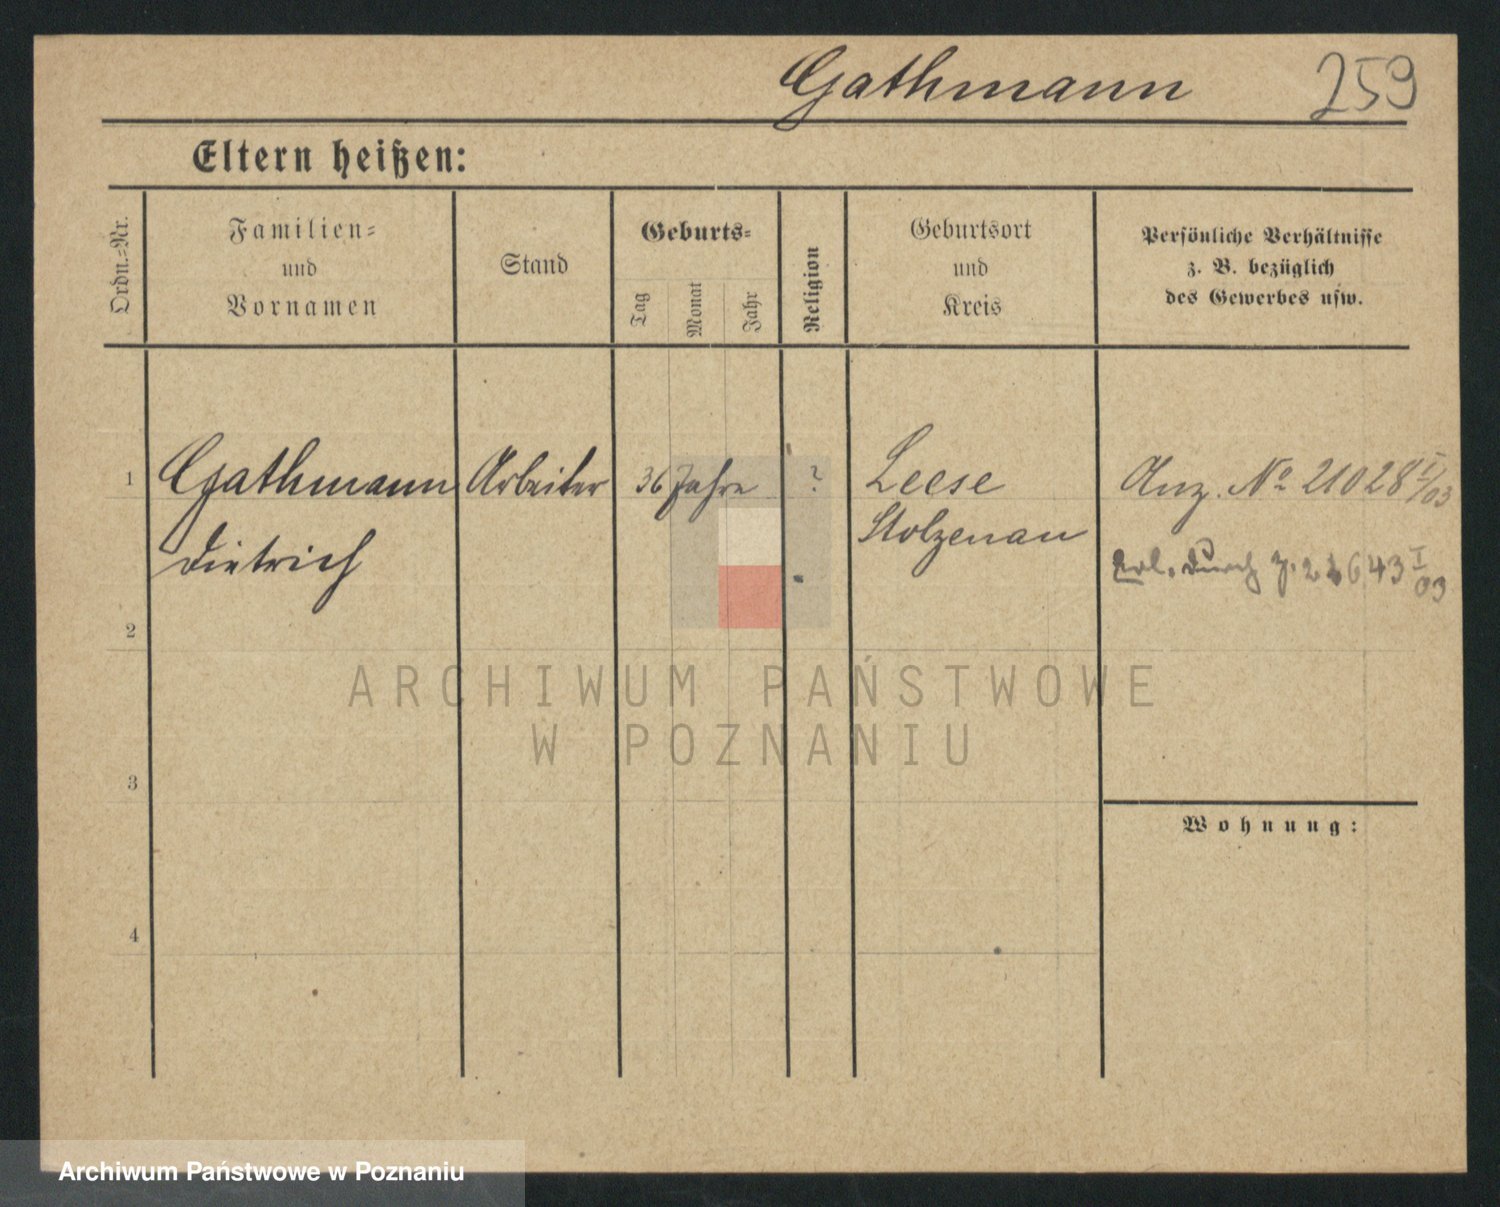 Gathmann 259
Eltern heißen:
Ordn.=Nr.
Familien=
und
Vornamen
Stand
Geburts=
Tag
Monat
Jahr
Religion
Geburtsort
und
Kreis
Persönliche Verhältnisse
z. B. bezüglich
des Gewerbes usw.
1 Gathmann Arbeiter 36 Jahre ? Leese Anz. No 21028 I/03
Dietrich Stolzenau
Erl. durch
2
3
4
Wohnung:
ARCHIWUM PAŃSTWOWE
W POZNANIU
Archiwum Państwowe w Poznaniu